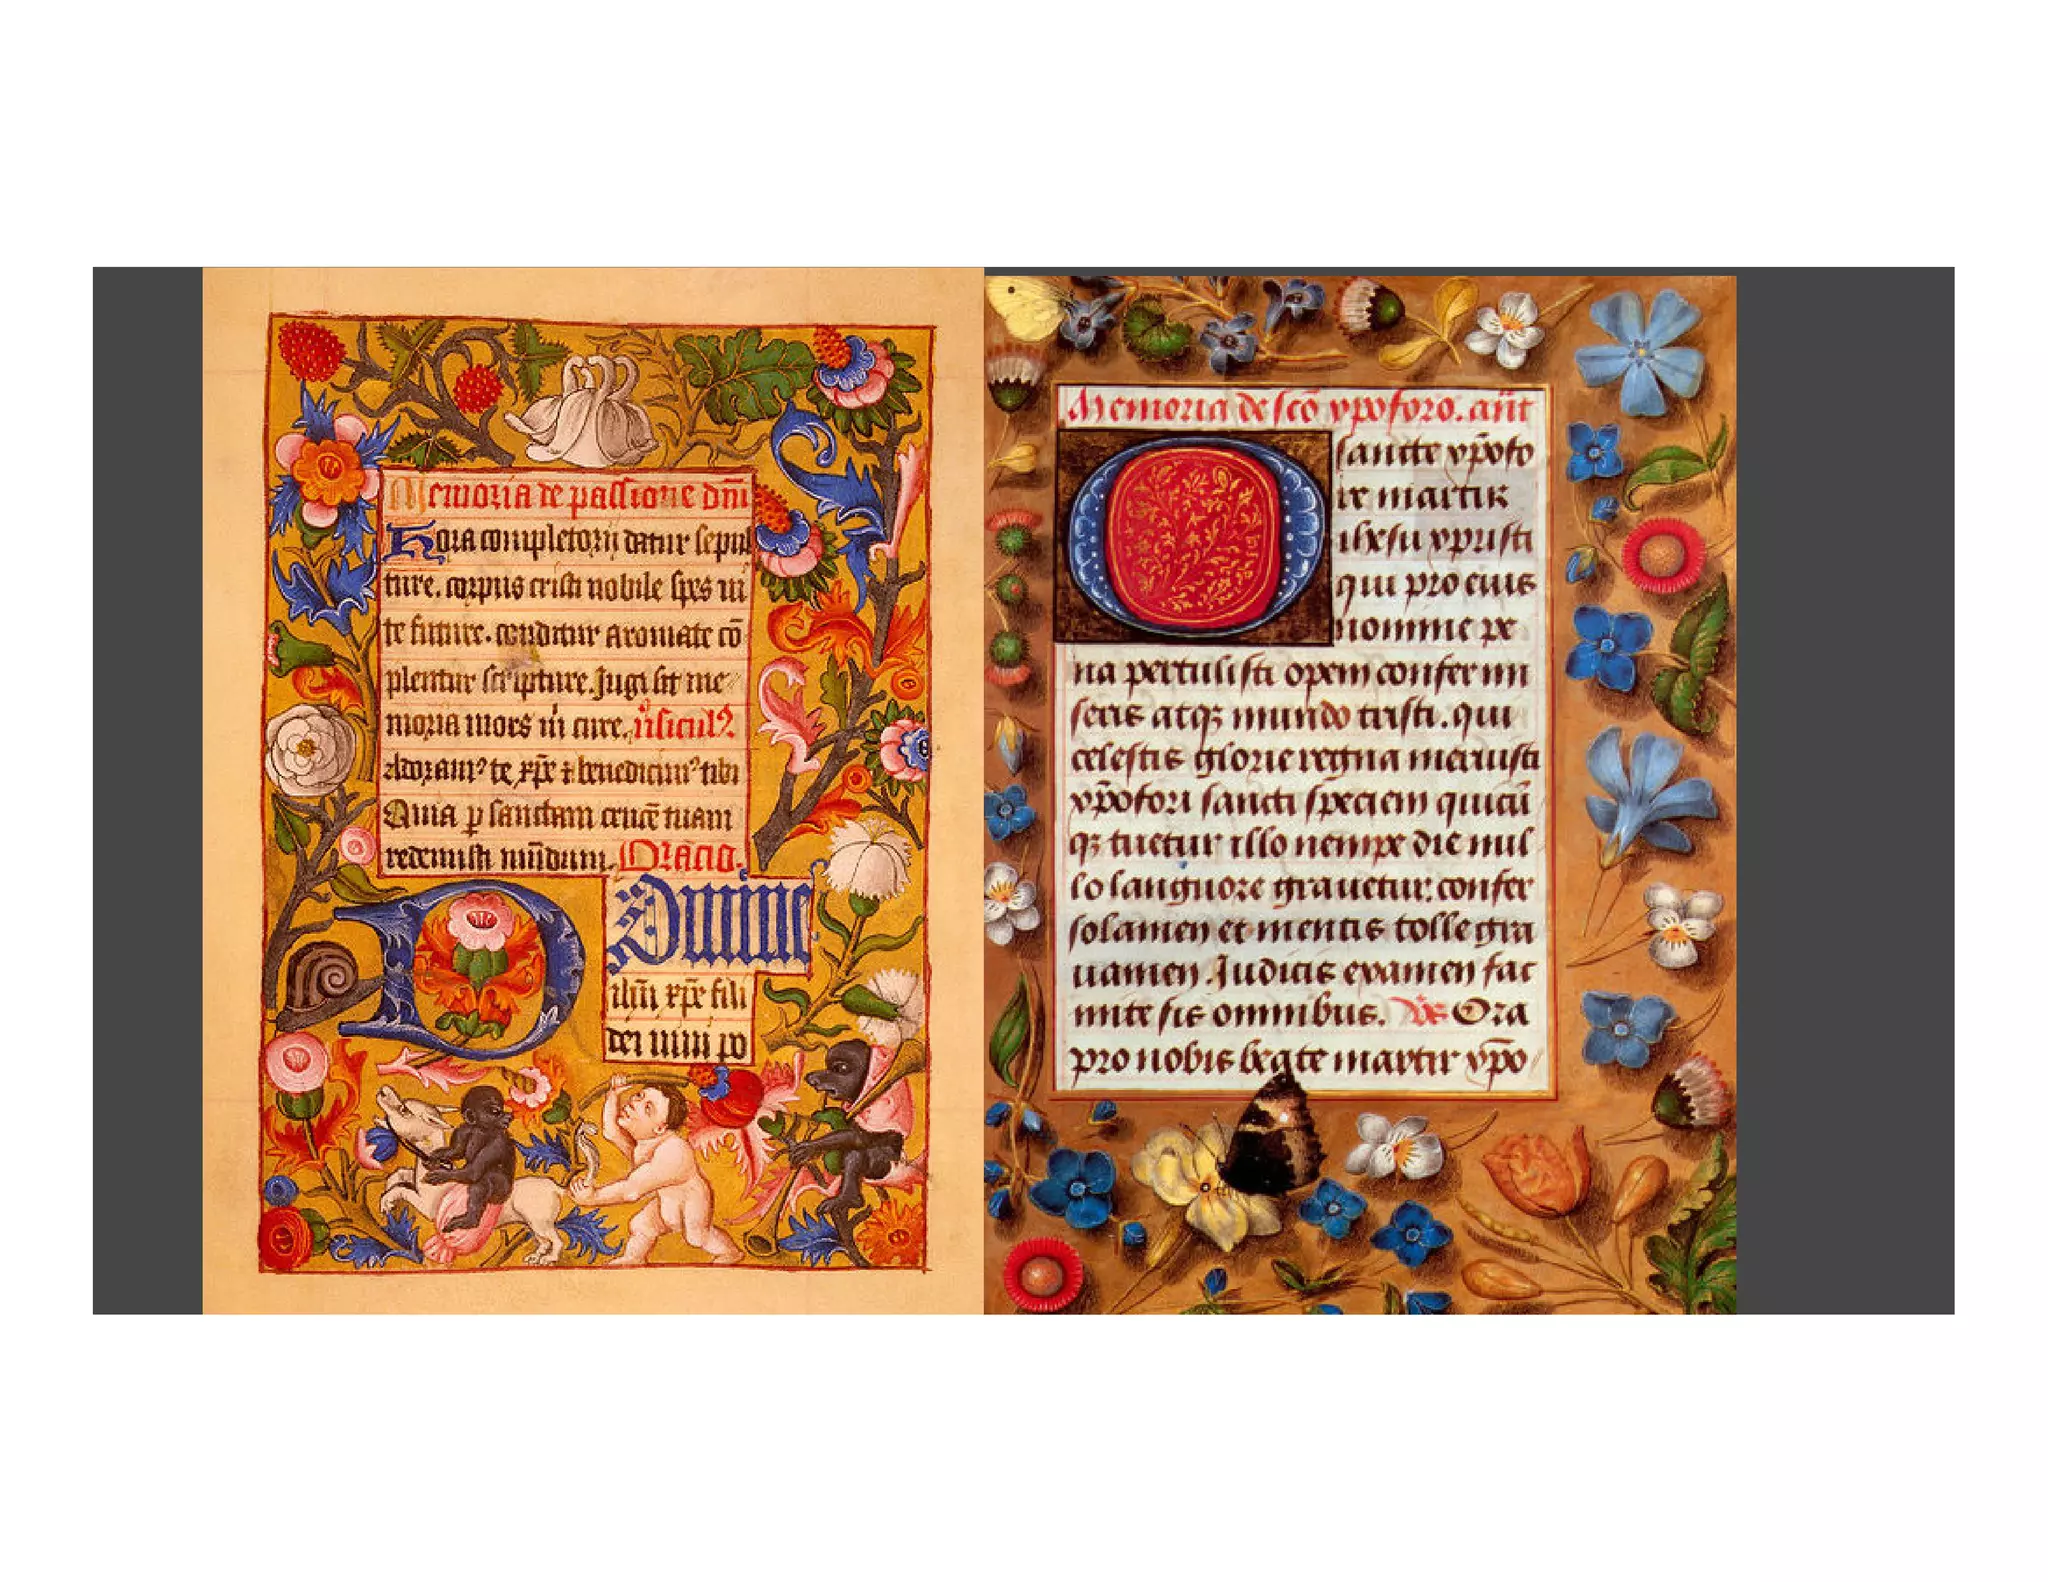 Memoria de passione dm̄
Hora completorij datur sepul
ture. corpus cristi nobile spes vi
te future. conditur aromate cō
plentur scripture. Jugi sit me
moria mors in cure. v̉sicul9.
Adoram9 te xp̄e ⁊ benedicim9 tibi
Quia ꝑ sanctam crucē tuam
redemisti mūdum. Oracio.
Domine
ihū xp̄e fili
dei viui po
Memoria de scō xp̄oforo. an̄t
O sancte xp̄ofo
re martir
ihesu xpristi
qui pro eius
nomine pe
na pertulisti opem confer mi
seris atqꝫ mundo tristi. qui
celestis glorie regna meruisti
xp̄ofori sancti speciem quicū
qꝫ tuetur illo nempe die nul
lo languore grauetur. confer
solamen et mentis tolle gra
uamen. Judicis examen fac
mite sis omnibus. V̄s Ora
pro nobis beate martir xp̄o